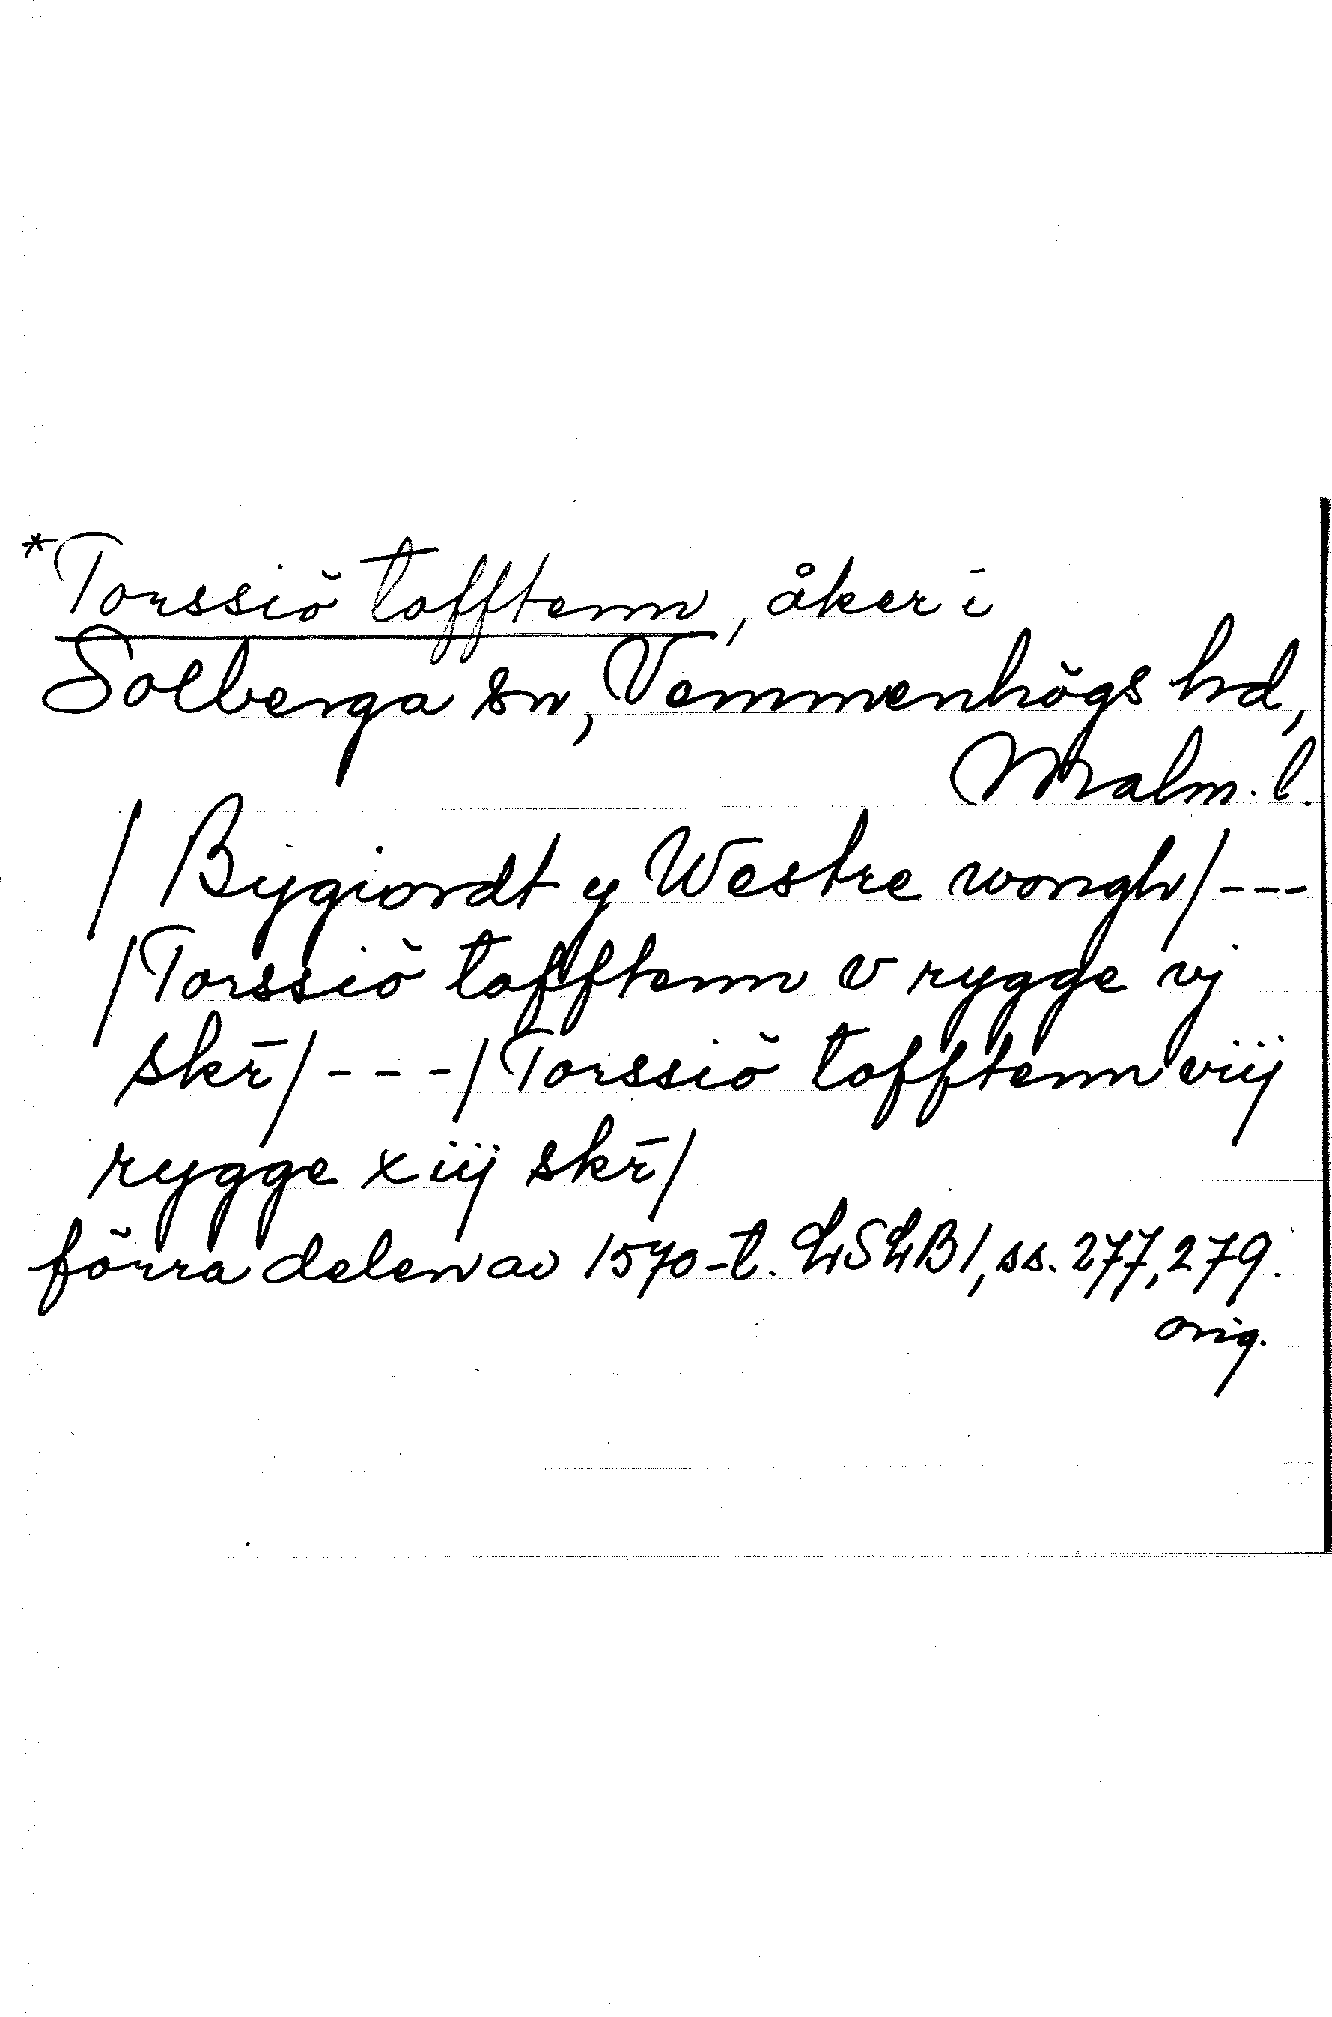 *Torssiö tofftenn, åker i
Solberga sn, Vemmenhögs hd,
Malm. l.
/ Bygiordt y Westre wongh/---
/Torssiö tofftenn v rygge vj
skr̄/---/Torssiö tofftenn viij
rygge xiij skr̄/
förra delen av 1570-t. LSLB1, ss. 277, 279.
orig.